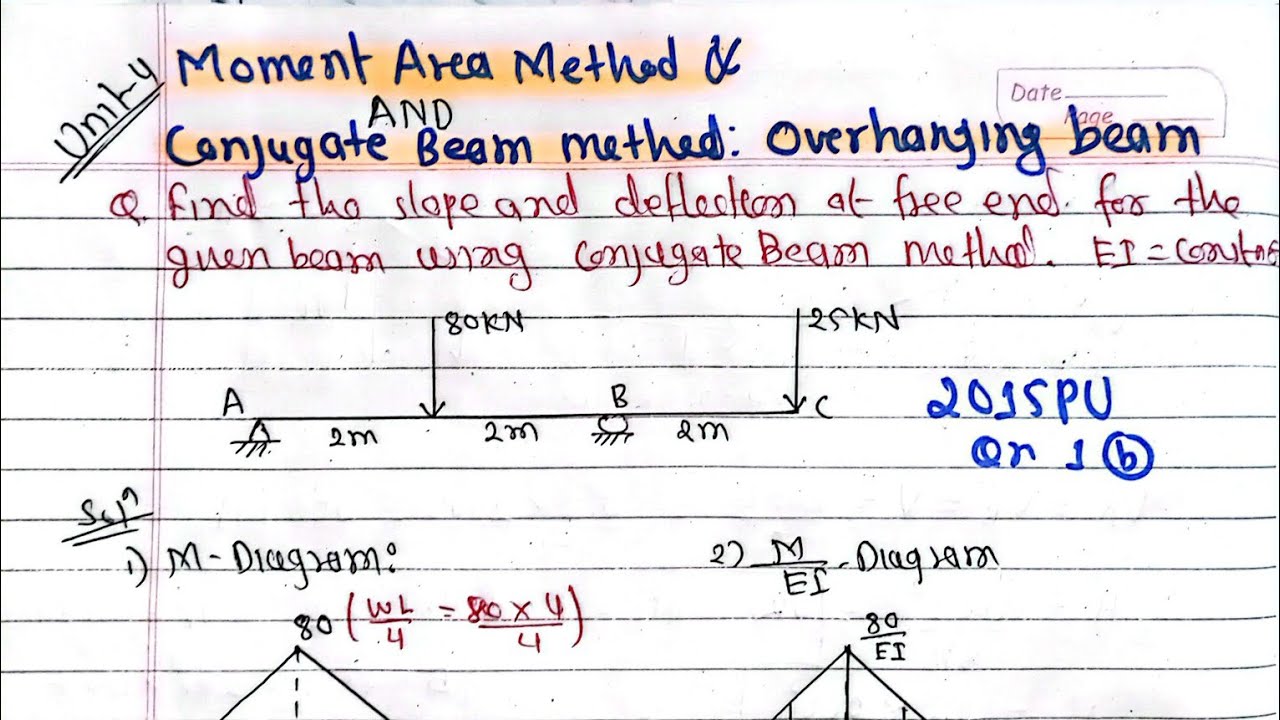 Unit-4
Moment Area Method &
AND
Date
Page
Conjugate Beam method: Overhanging beam
Q. Find the slope and deflection at free end. for the
given beam using Conjugate Beam method. EI = Constant
80KN
25KN
A
B
C
2m
2m
2m
2015PU
Qn 1 b
Solⁿ
1) M-Diagram:
2) M/EI -Diagram
80 (WL/4 = 80 × 4/4)
80/EI